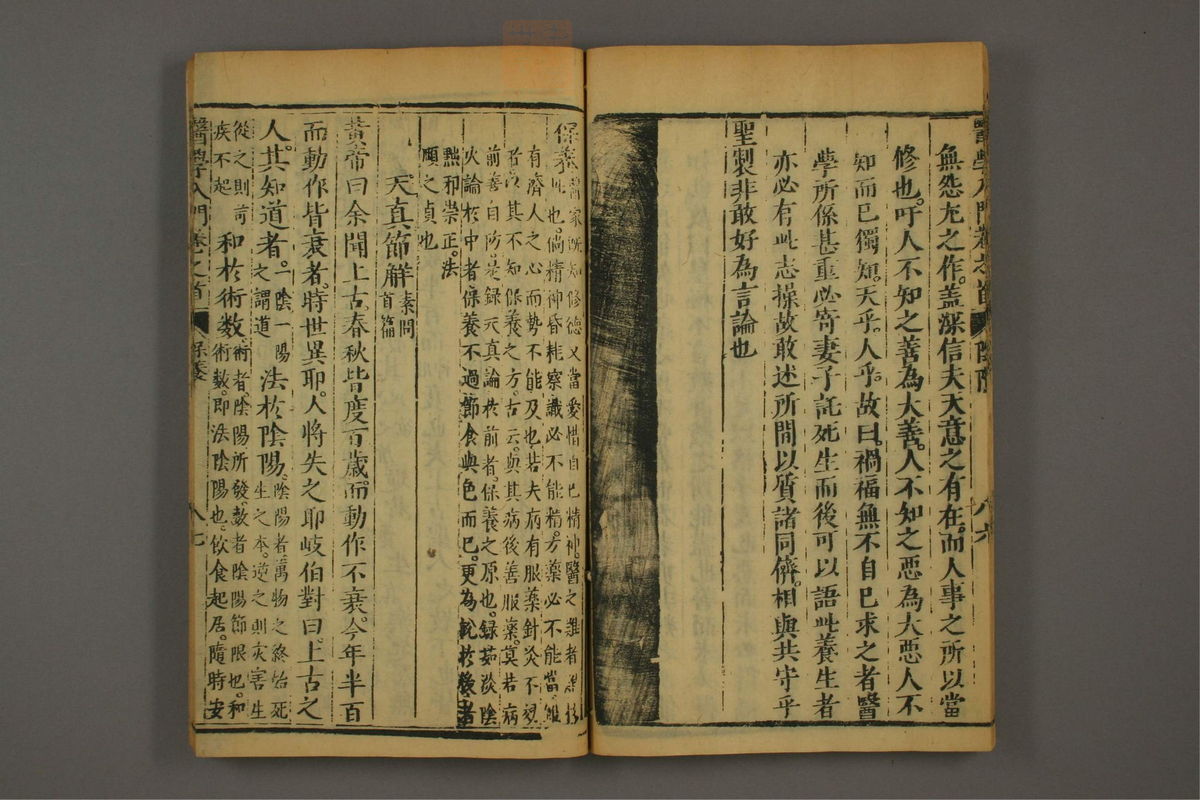 無怨尤之作蓋深信夫天意之有在而人事之所以當
修也吁人不知之善為大善人不知之惡為大惡人不
知而己獨知天乎人乎故曰禍福無不自己求之者醫
學所係甚重必寄妻子託死生而後可以語此養生者
亦必有此志操故敢述所聞以質諸同儕相與共守乎
聖製非敢好為言論也
醫學入門卷之首 陰隲 八六
保養
醫家既知修德又當愛惜自己精神醫之難者
此也倘精神昏耗察識必不能精方藥必不能當雖
有濟人之心而勢不能及也若夫病有服藥針灸不
者以其不知保養之方古云與其病後善服藥莫若病
前善自防是錄天真論於前者保養之原也錄茹淡陰
火論於中者保養不過節食與色而已更為說於後者
黜邪崇正法
頤之貞也
天真節解 素問
首篇
黃帝曰余聞上古春秋皆度百歲而動作不衰今年半百
而動作皆衰者時世異耶人將失之耶岐伯對曰上古之
人其知道者一陰一陽
之謂道 法於陰陽 陰陽者萬物之終始死
生之本逆之則灾害生
從之則苛
疾不起 和於術數 術者陰陽所發數者陰陽節限也和
術數即法陰陽也飲食起居隨時安
醫學入門卷之首 保養 八七